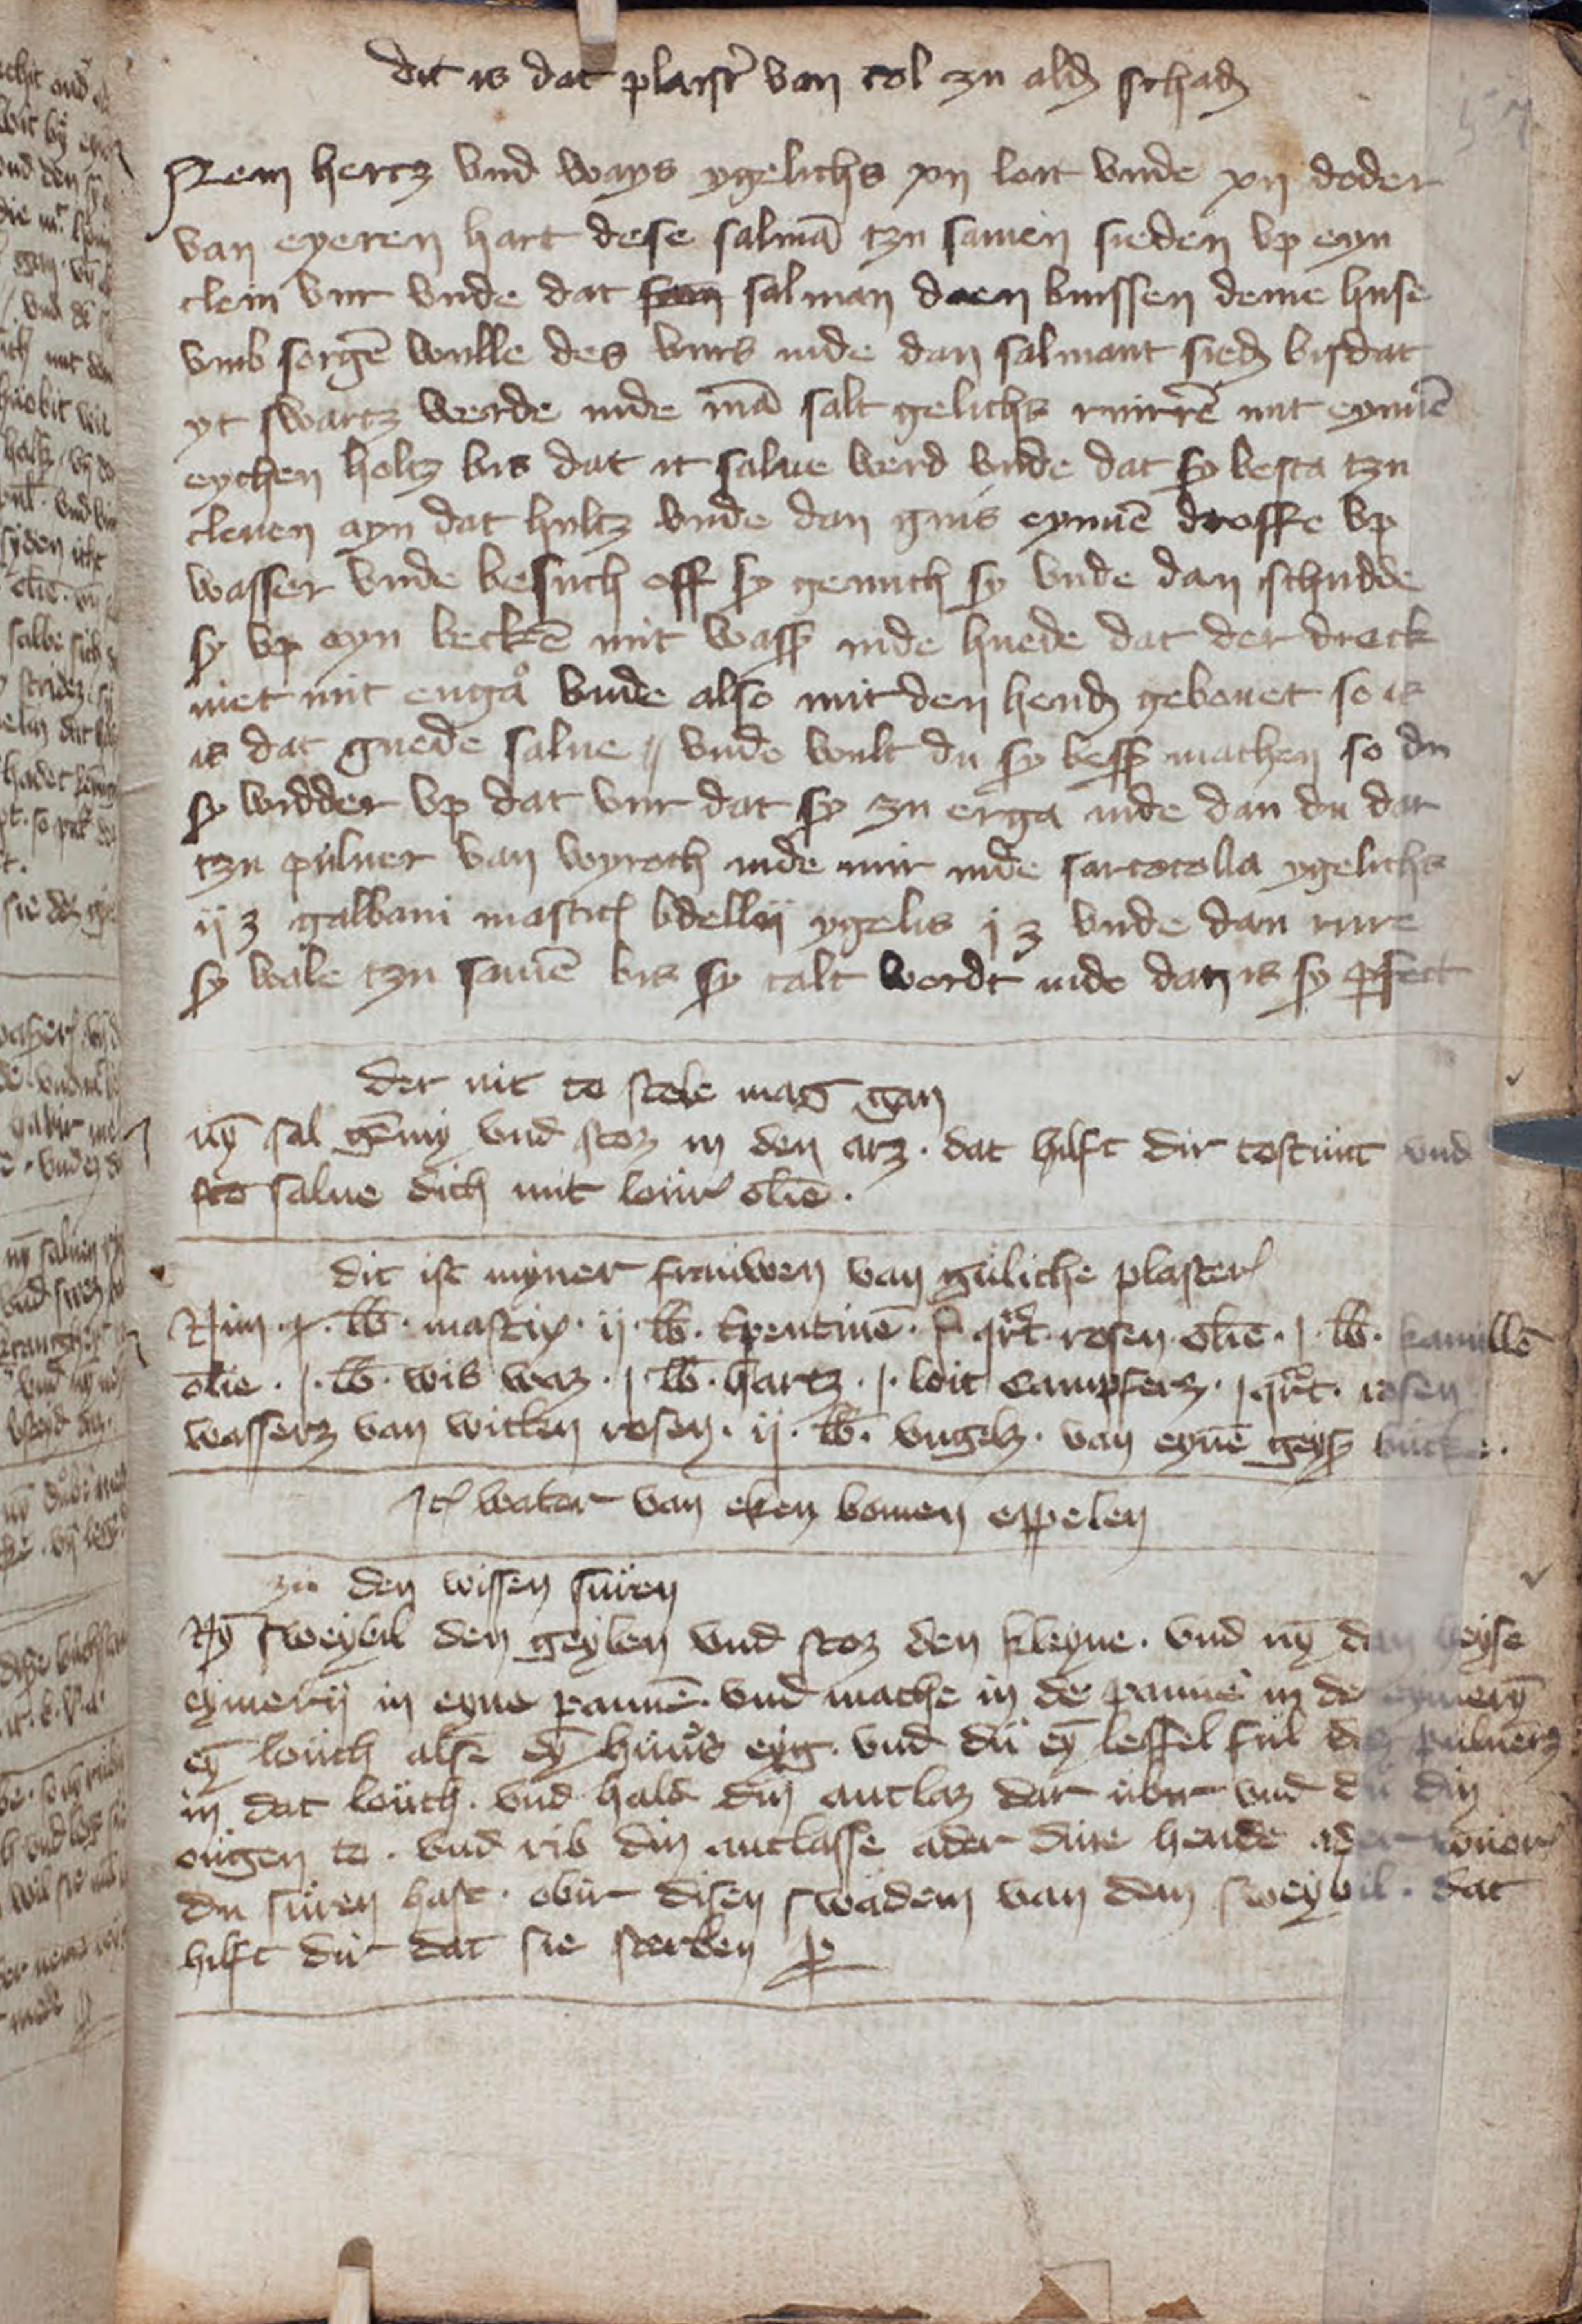 dit is dat plaistr van col zu ald schad
Item hertz vnd ways ygelichs xij loit vnde xij doder
van eyeren hart dese salmā tzu samen sieden vp eyn
clein vur vnde dat salman doen buyssen deme huse
vmb sorgē wulle des vurs inde dan salmant sied bisdat
yt swartz werde inde mā salt gelichs rurrē mit eymē
eychen holtz bis dat it salue werd vnde dat sy besta tzu
cleuen ayn dat hultz vnde dan guis eymē droffe vp
wasser vnde besuch off sy genuch sy vnde dan schudde
sy vp eyn beckē mit wass inde huede dat der dreck
niet mit enga vnde also mit den hend gebouet so is
is dat guede salue // vnde wult du sy bess machen so du
sy widder vp dat vur dat sy zu erga inde dan du dat
tzu puluer van wyroch inde mir inde sarcocolla ygelichs
ij ʒ galbani mastic bdellij ygelis j ʒ vnde dan rure
sy wale tzu samē bis sy calt wordt inde dan is sy perfect
der nit to stole mag gan
nȳ sal gēmy vnd stoz in den arz · dat hilft dir tostunt vnd
sto salue dich mit lour olie ·
dit ist myner frauwen van guliche plaster
Nim · j · lb · mastix · ij · lb · tpentinē · qrt · rosen olie · j · lb · kamillē
olie · j · lb · wis waz · j lb · hartz · j · loit campferz · j qrt · rosen
wasserz van witten rosen · ij · lb · vngelz · van eynē geys bucke ·
It water van eken bomen eppelen
zu den wissen suren
Nȳ sweybil den geylen vnd stoz den kleyne · vnd nȳ dan heyse
eymerij in eyne pannē · vnd mache in de panne in de eymerȳ
eȳ louch alse eȳ huners eyg · vnd du eȳ leffel ful des puluerz
in dat louch · vnd hald din antlaz dar ubir vnd du din
ougen to · vnd rib din antlasse ader dine hende ader wouor
du suren hast · obir disen swadem van dem sweybil · dat
hilft dir dat sie sterben